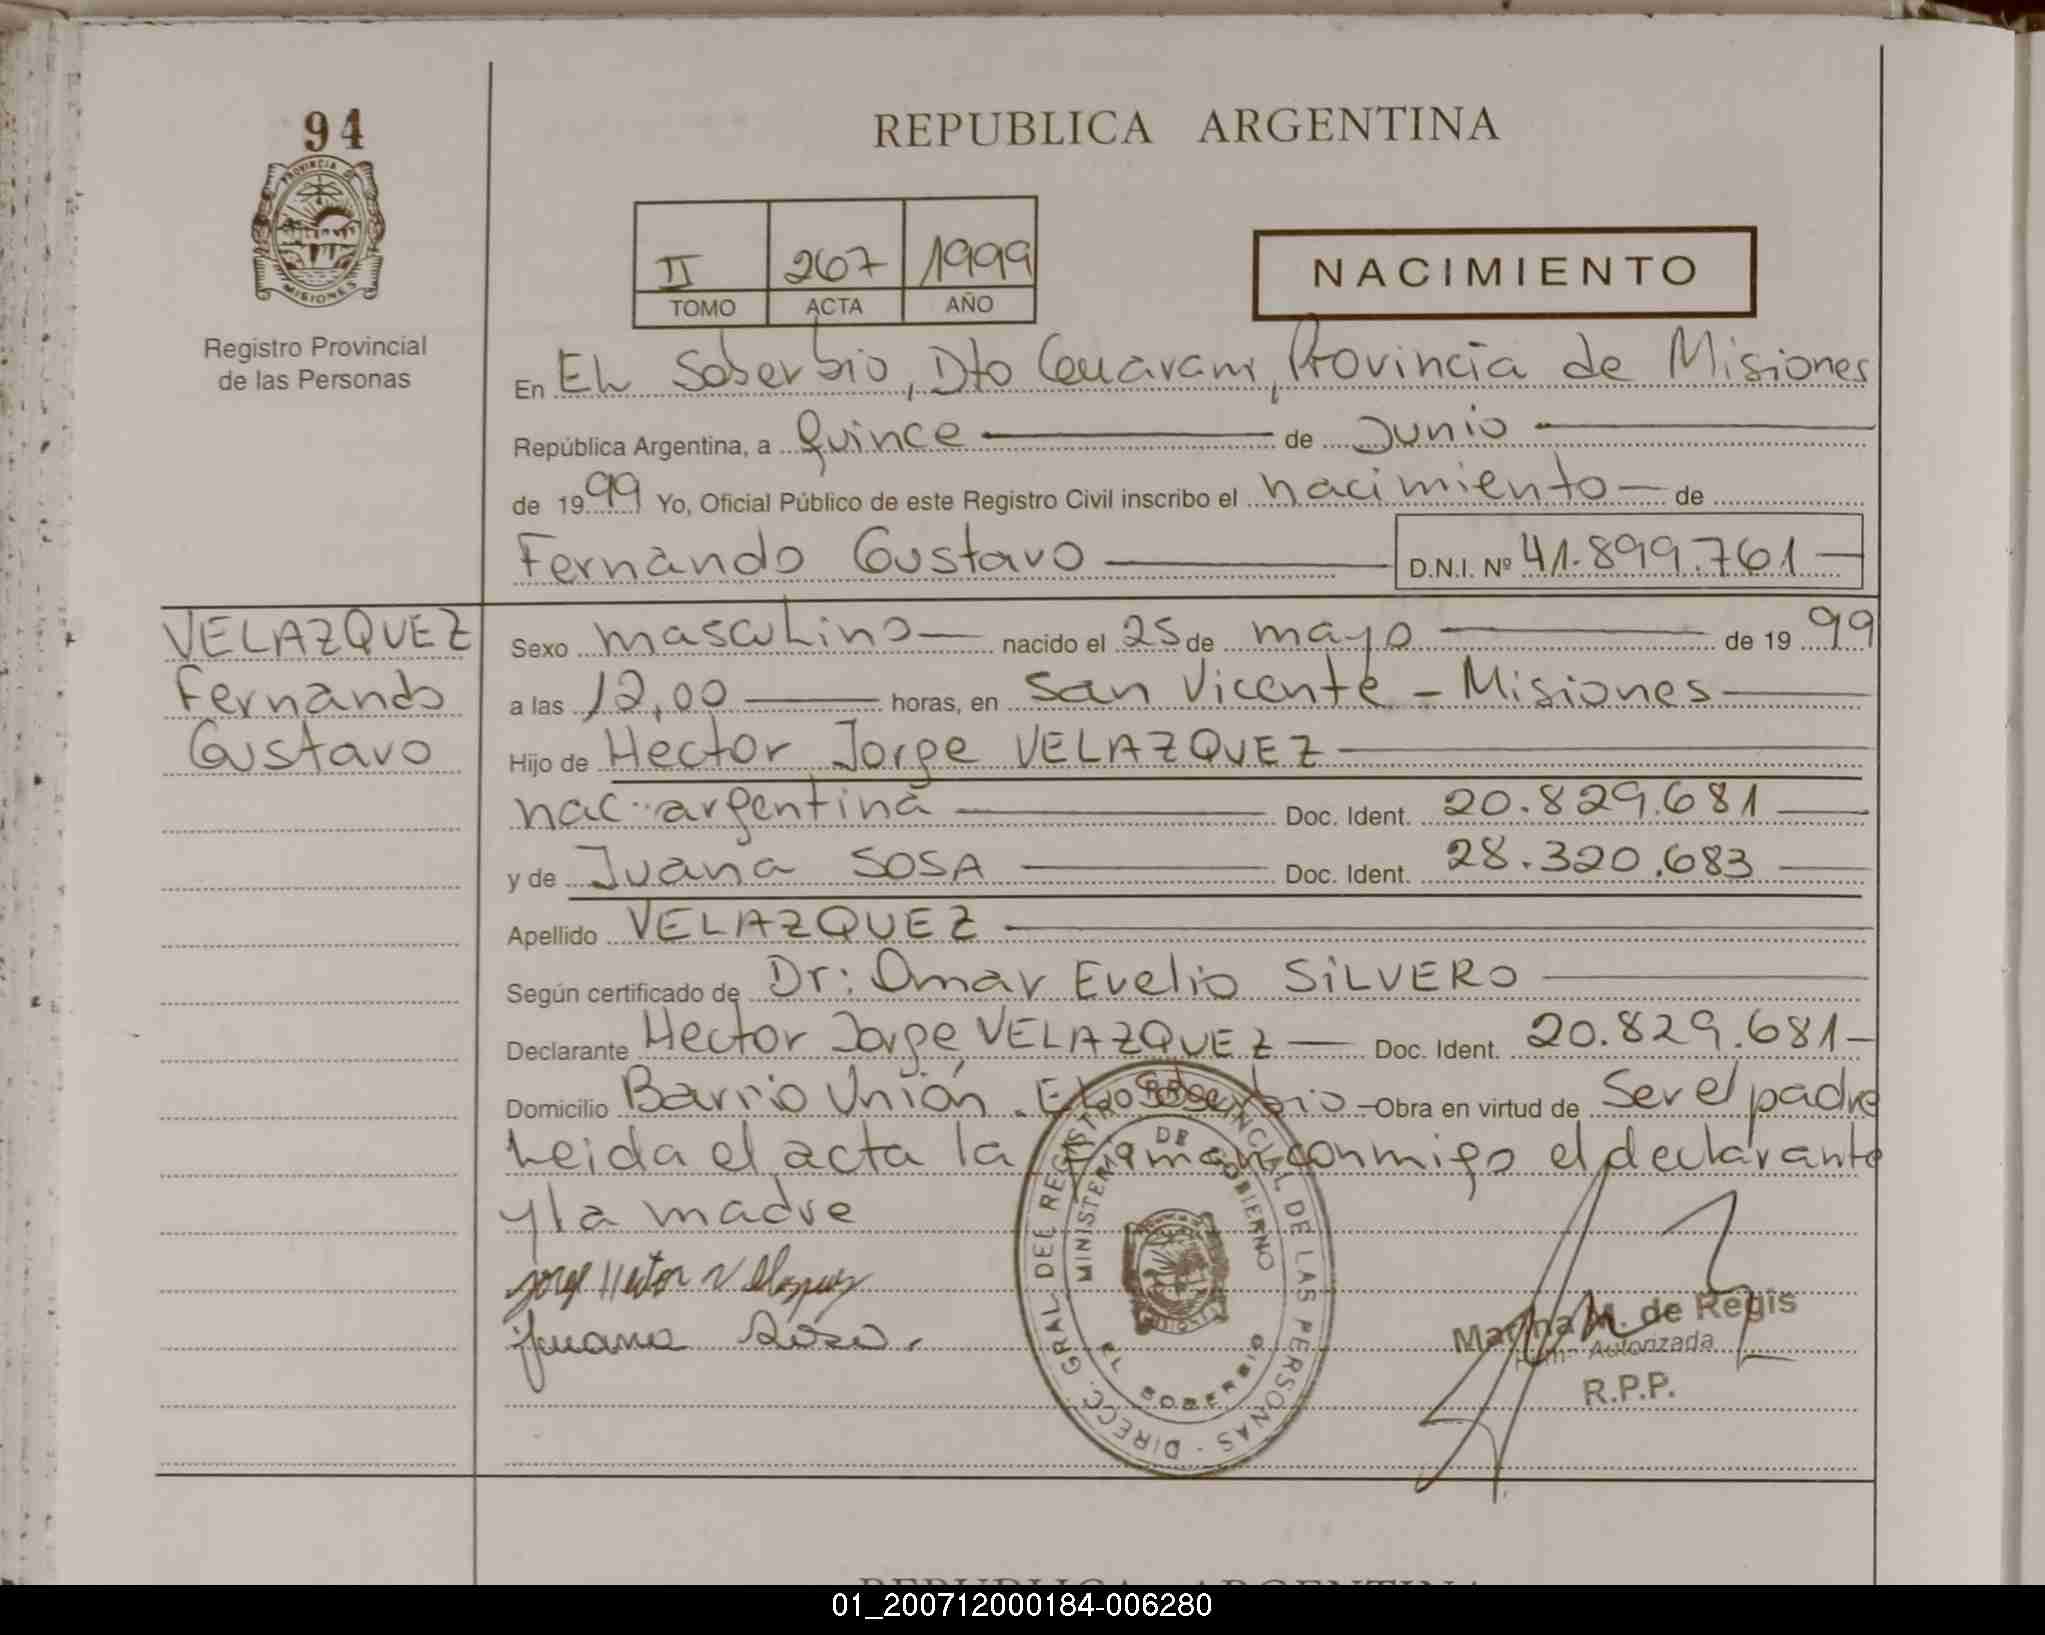 94
PROVINCIA DE
MISIONES
Registro Provincial
de las Personas
REPUBLICA ARGENTINA
II 267 1999
TOMO ACTA AÑO
NACIMIENTO
En El Soberbio, Dto Guarani, Provincia de Misiones
República Argentina, a Quince de Junio
de 1999 Yo, Oficial Público de este Registro Civil inscribo el nacimiento de
Fernando Gustavo D.N.I. Nº 41.899.761
VELAZQUEZ
Fernando
Gustavo
Sexo masculino nacido el 25 de mayo de 1999
a las 12,00 horas, en San Vicente - Misiones
Hijo de Hector Jorge VELAZQUEZ
nac. argentina Doc. Ident. 20.829.681
y de Juana SOSA Doc. Ident. 28.320.683
Apellido VELAZQUEZ
Según certificado de Dr: Omar Evelio SILVERO
Declarante Hector Jorge VELAZQUEZ Doc. Ident. 20.829.681
Domicilio Barrio Unión. El Soberbio Obra en virtud de Ser el padre
Leida el acta la firman conmigo el declarante
y la madre
Jorge Hector Velazquez
Juana Sosa.
DIRECC. GRAL DEL REGISTRO PROVINCIAL DE LAS PERSONAS
MINISTERIO DE GOBIERNO
EL SOBERBIO
M. de Regis
Autorizada
R.P.P.
REPUBLICA ARGENTINA
01_200712000184-006280